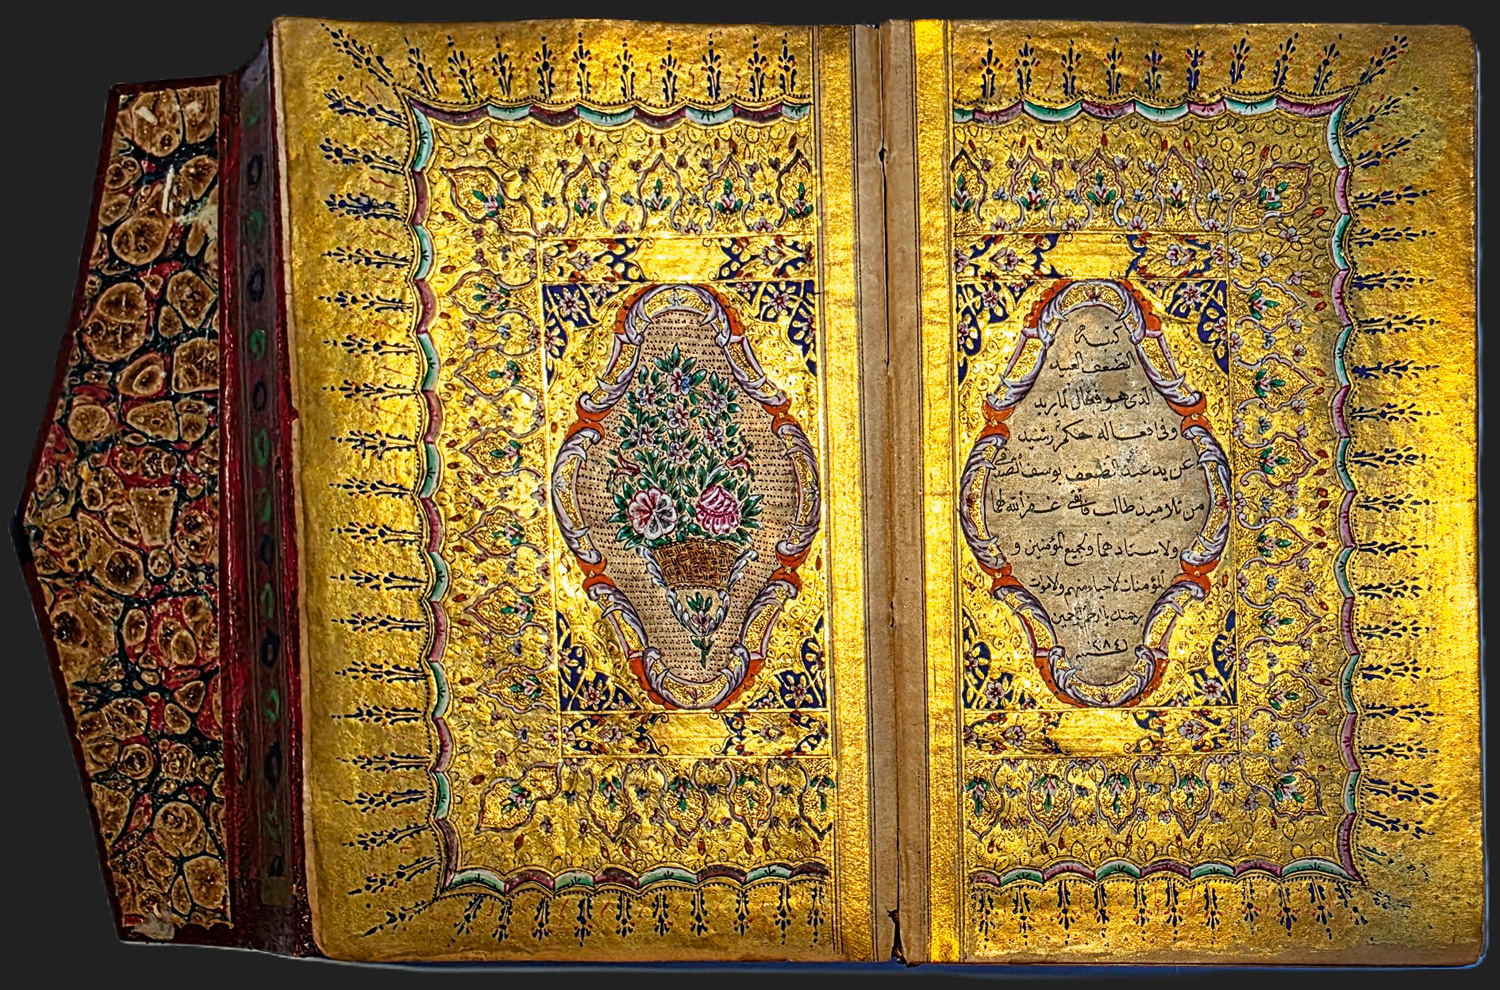 كتبه
الضعف العبيد
الذى هو فعال لما يريد
وفى افعاله حكم رشيد
عن يد عبد الضعف يوسف
من تلاميذ طالب غفر الله لهما
ولاستادهما ولجميع المؤمنين و
المؤمنات الاحياء منهم والاموات
برحمتك يا ارحم الراحمين
سنه